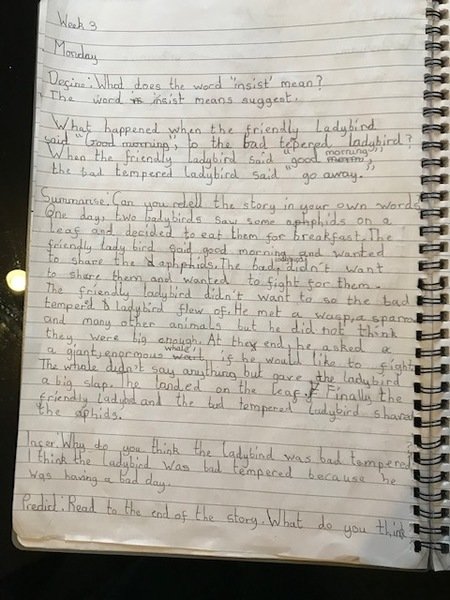 Week 3
Monday
Define: What does the word "insist" mean?
The word insist means suggest.
What happened when the friendly Ladybird
said "Good morning", to the bad tepered ladybird?
When the friendly ladybird said "good morning",
the bad tempered ladybird said "go away."
Summarise: Can you retell the story in your own words
One day, two ladybirds saw some aphphids on a
leaf and decided to eat them for breakfast. The
friendly lady bird said good morning and wanted
to share the aphphids. The bad, didn't want
to share them and wanted to fight for them.
The friendly ladybird didn't want to so the bad
temperd ladybird flew of. He met a wasp, a sparrow
and many other animals but he did not think
they, were big enough. At they end, he asked a
a giant, enormous whale, if he would like to fight.
The whale didn't say anything but gave the ladybird
a big slap. The landed on the leaf. Finally the
friendly ladybid and the bad tempered ladybird shared
the aphids.
Infer: Why do you think the ladybird was bad tempered
I think the ladybird was bad tempered because he
was having a bad day.
Predict: Read to the end of the story. What do you think